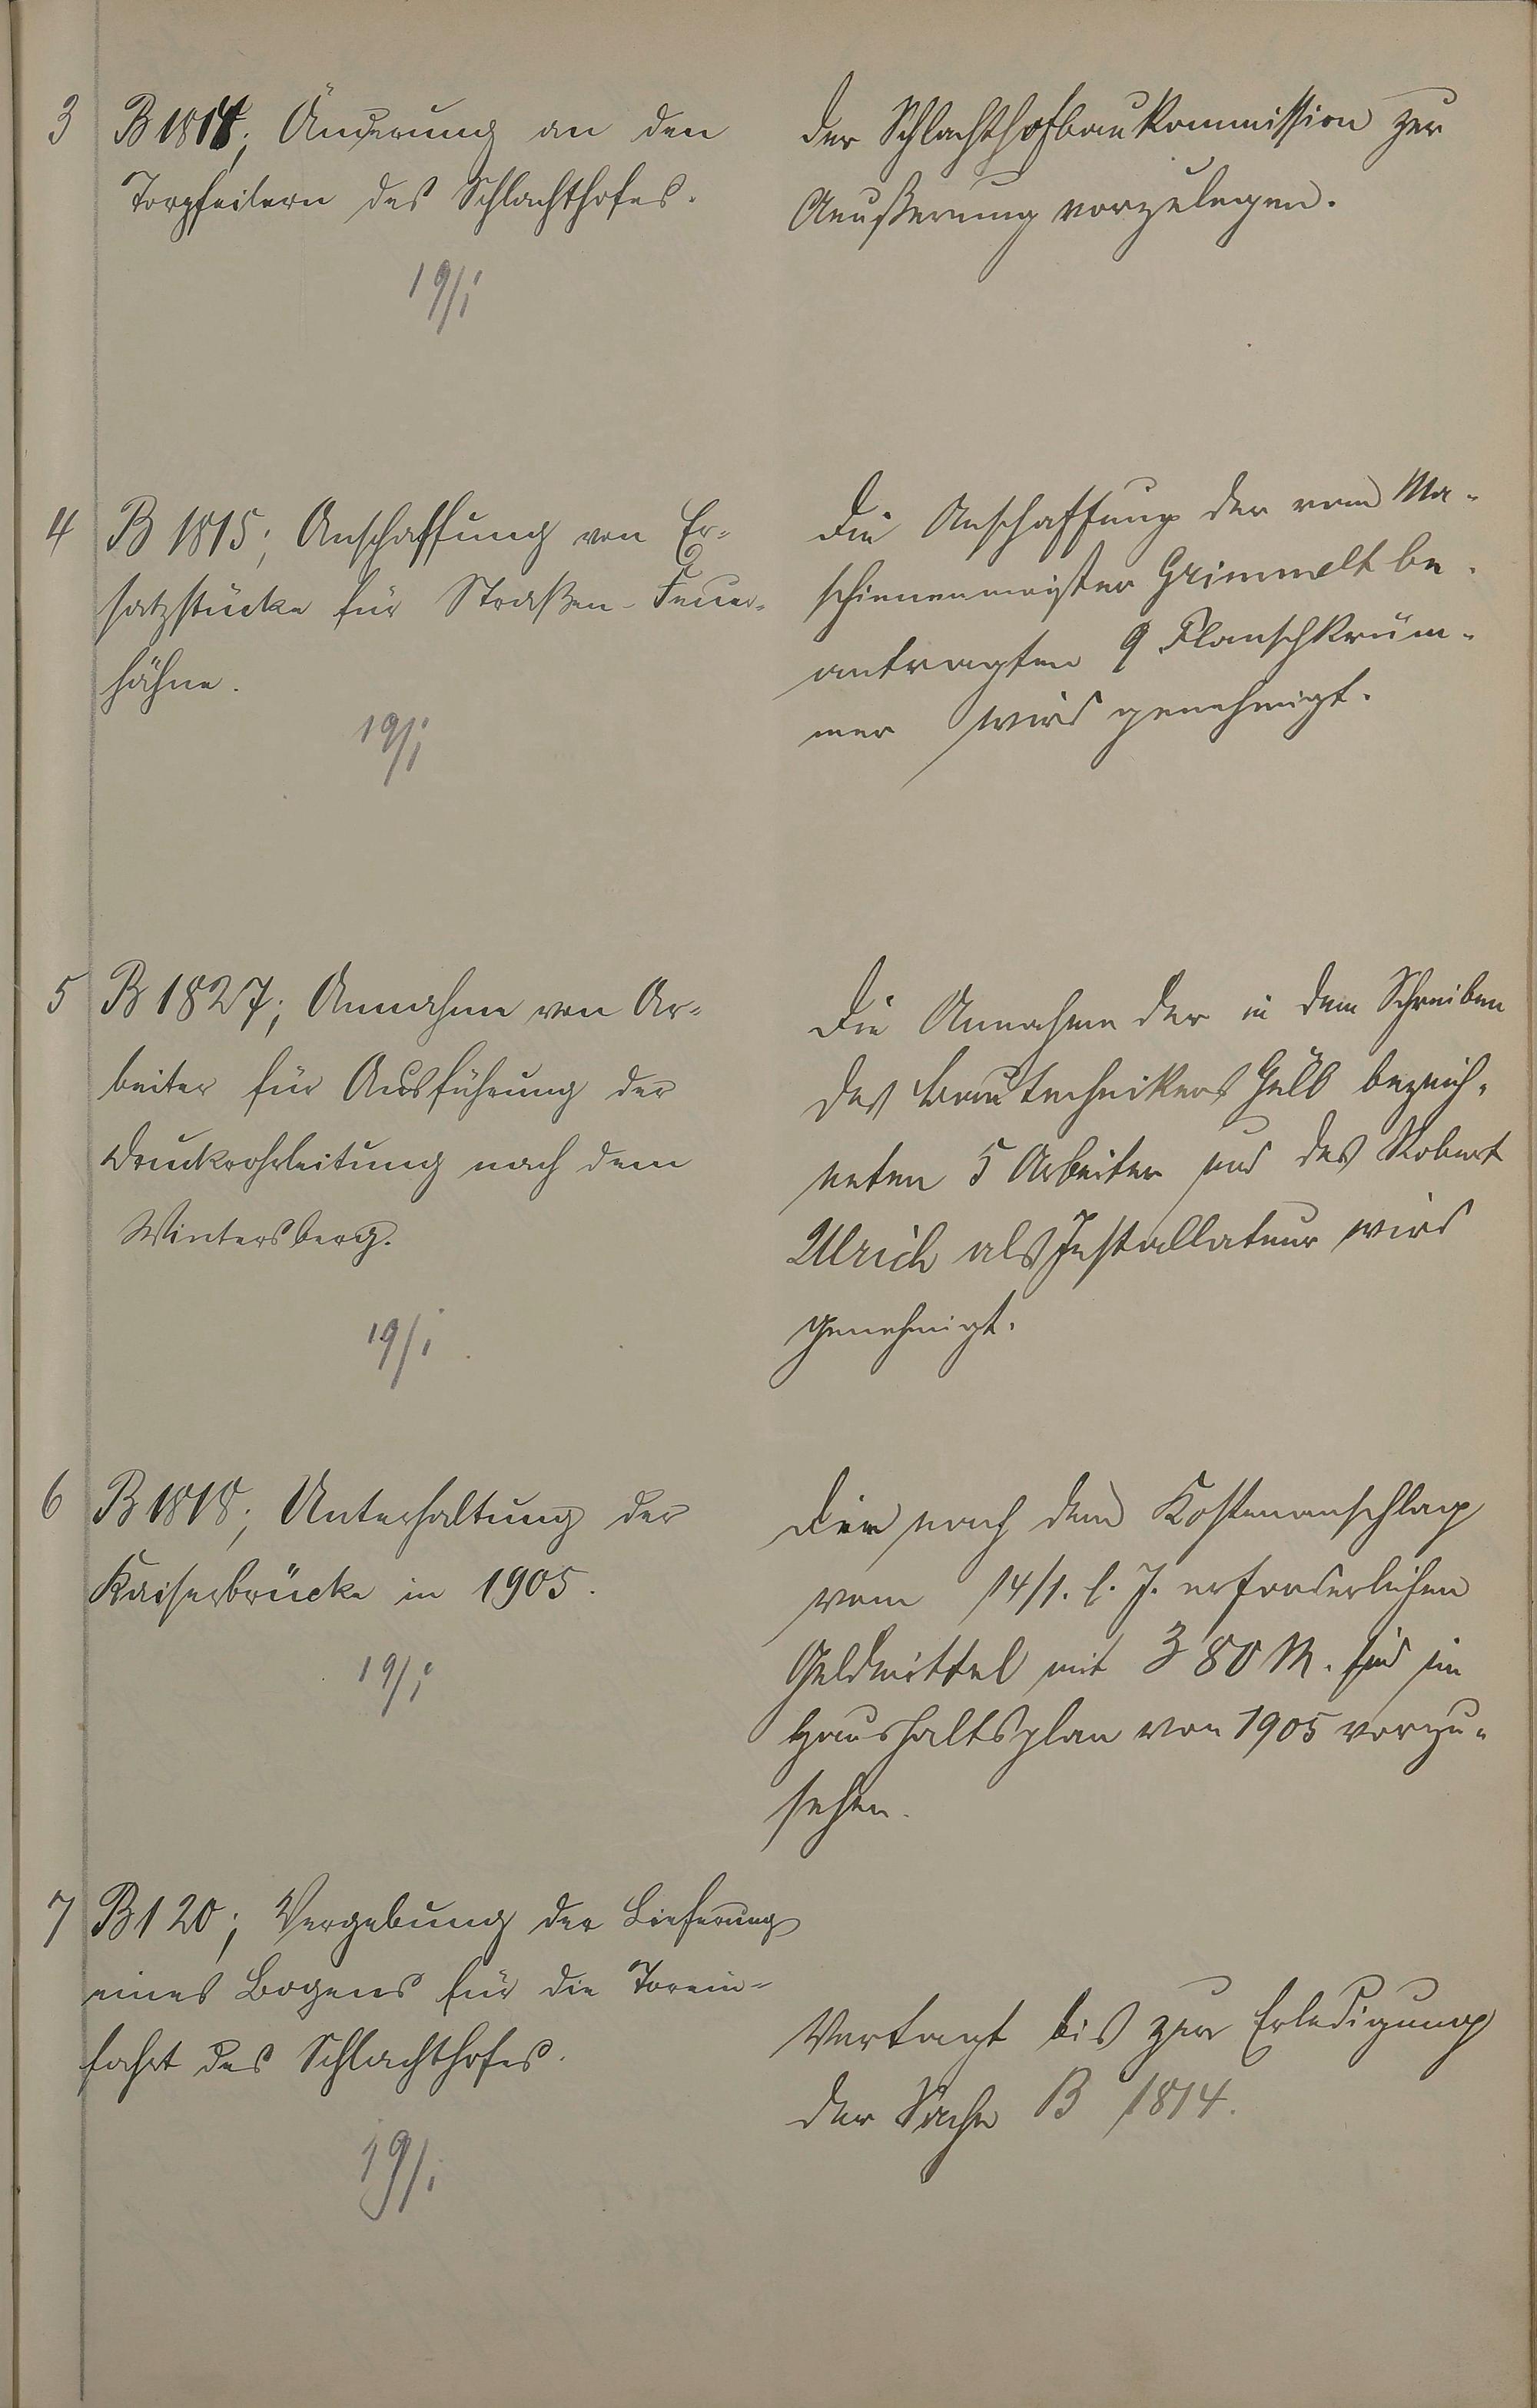 3 B 1814; Änderung an den
Torpfeilern des Schlachthofes.
19/I
der Schlachthofbaukommission zur
Aeußerung vorzulegen.
4 B 1815; Anschaffung von Er-
satzstücke für Straßen-Feuer-
hähne.
19/I
Die Anschaffung der vom Ma-
schienenmeister Grimmelt be-
antragten 9 Flanschkrüm-
mer wird genehmigt.
5 B 1827; Annahme von Ar-
beiter für Ausführung der
Druckrohrleitung nach dem
Wintersberg.
19/I
Die Annahme der in dem Schreiben
des Bautechnikers bezeich-
neten 5 Arbeiter und des Robert
Ulrich als Installateur wird
genehmigt.
6 B 1818; Unterhaltung der
Kaiserbrücke in 1905.
19/I
Die nach dem Kostenanschlag
vom 14/1. l. J. erforderlichen
Geldmittel mit 380 M. sind im
Haushaltsplan von 1905 vorzu-
sehen.
7 B 120; Vergebung der Lieferung
eines Bogens für die Torein-
fahrt des Schlachthofes.
19/I
Vertagt bis zur Erledigung
der Sache B 1814.